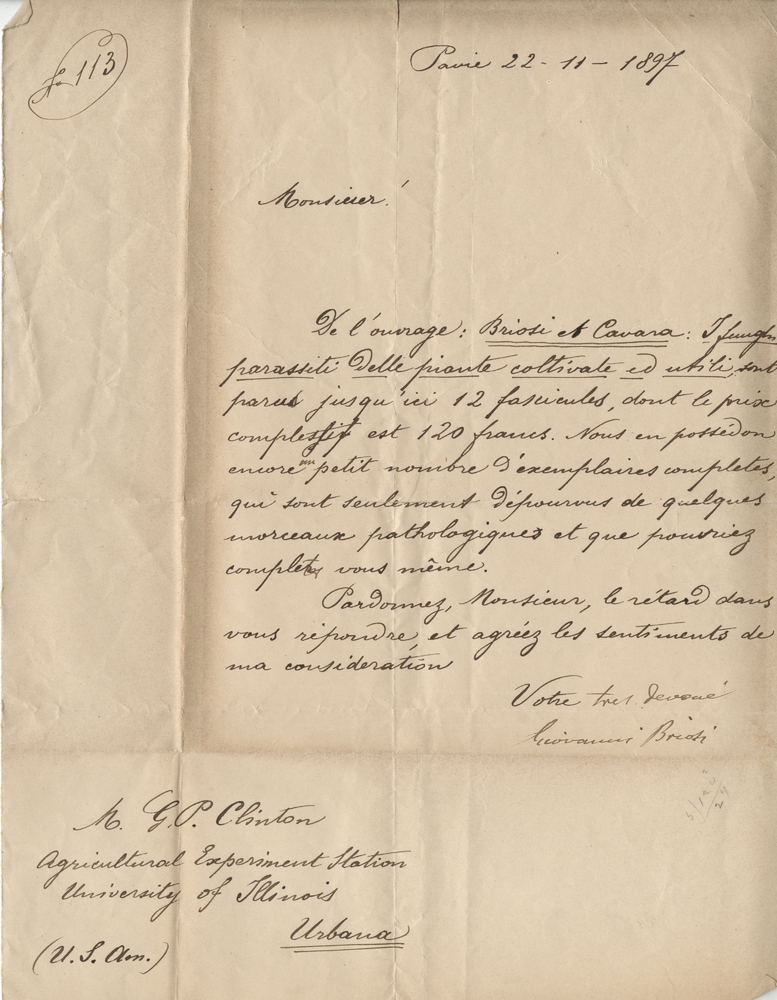 113
Pavie 22 - 11 - 1897
Monsieur!
De l'ouvrage: Briosi et Cavara: I funghi
parassiti delle piante coltivate ed utili, sont
parus jusqu'ici 12 fascicules, dont le prix
complessif est 120 francs. Nous en possédon
encore un petit nombre d'exemplaires completes,
qui sont seulement dépourvus de quelques
morceaux pathologiques et que pouvriez
completer vous même.
Pardonnez, Monsieur, le rétard dans
vous répondre, et agréez les sentiments de
ma consideration
Votre tres devoué
Giovanni Briosi
M. G. P. Clinton
Agricultural Experiment Station
University of Illinois
Urbana
(U. S. Am.)